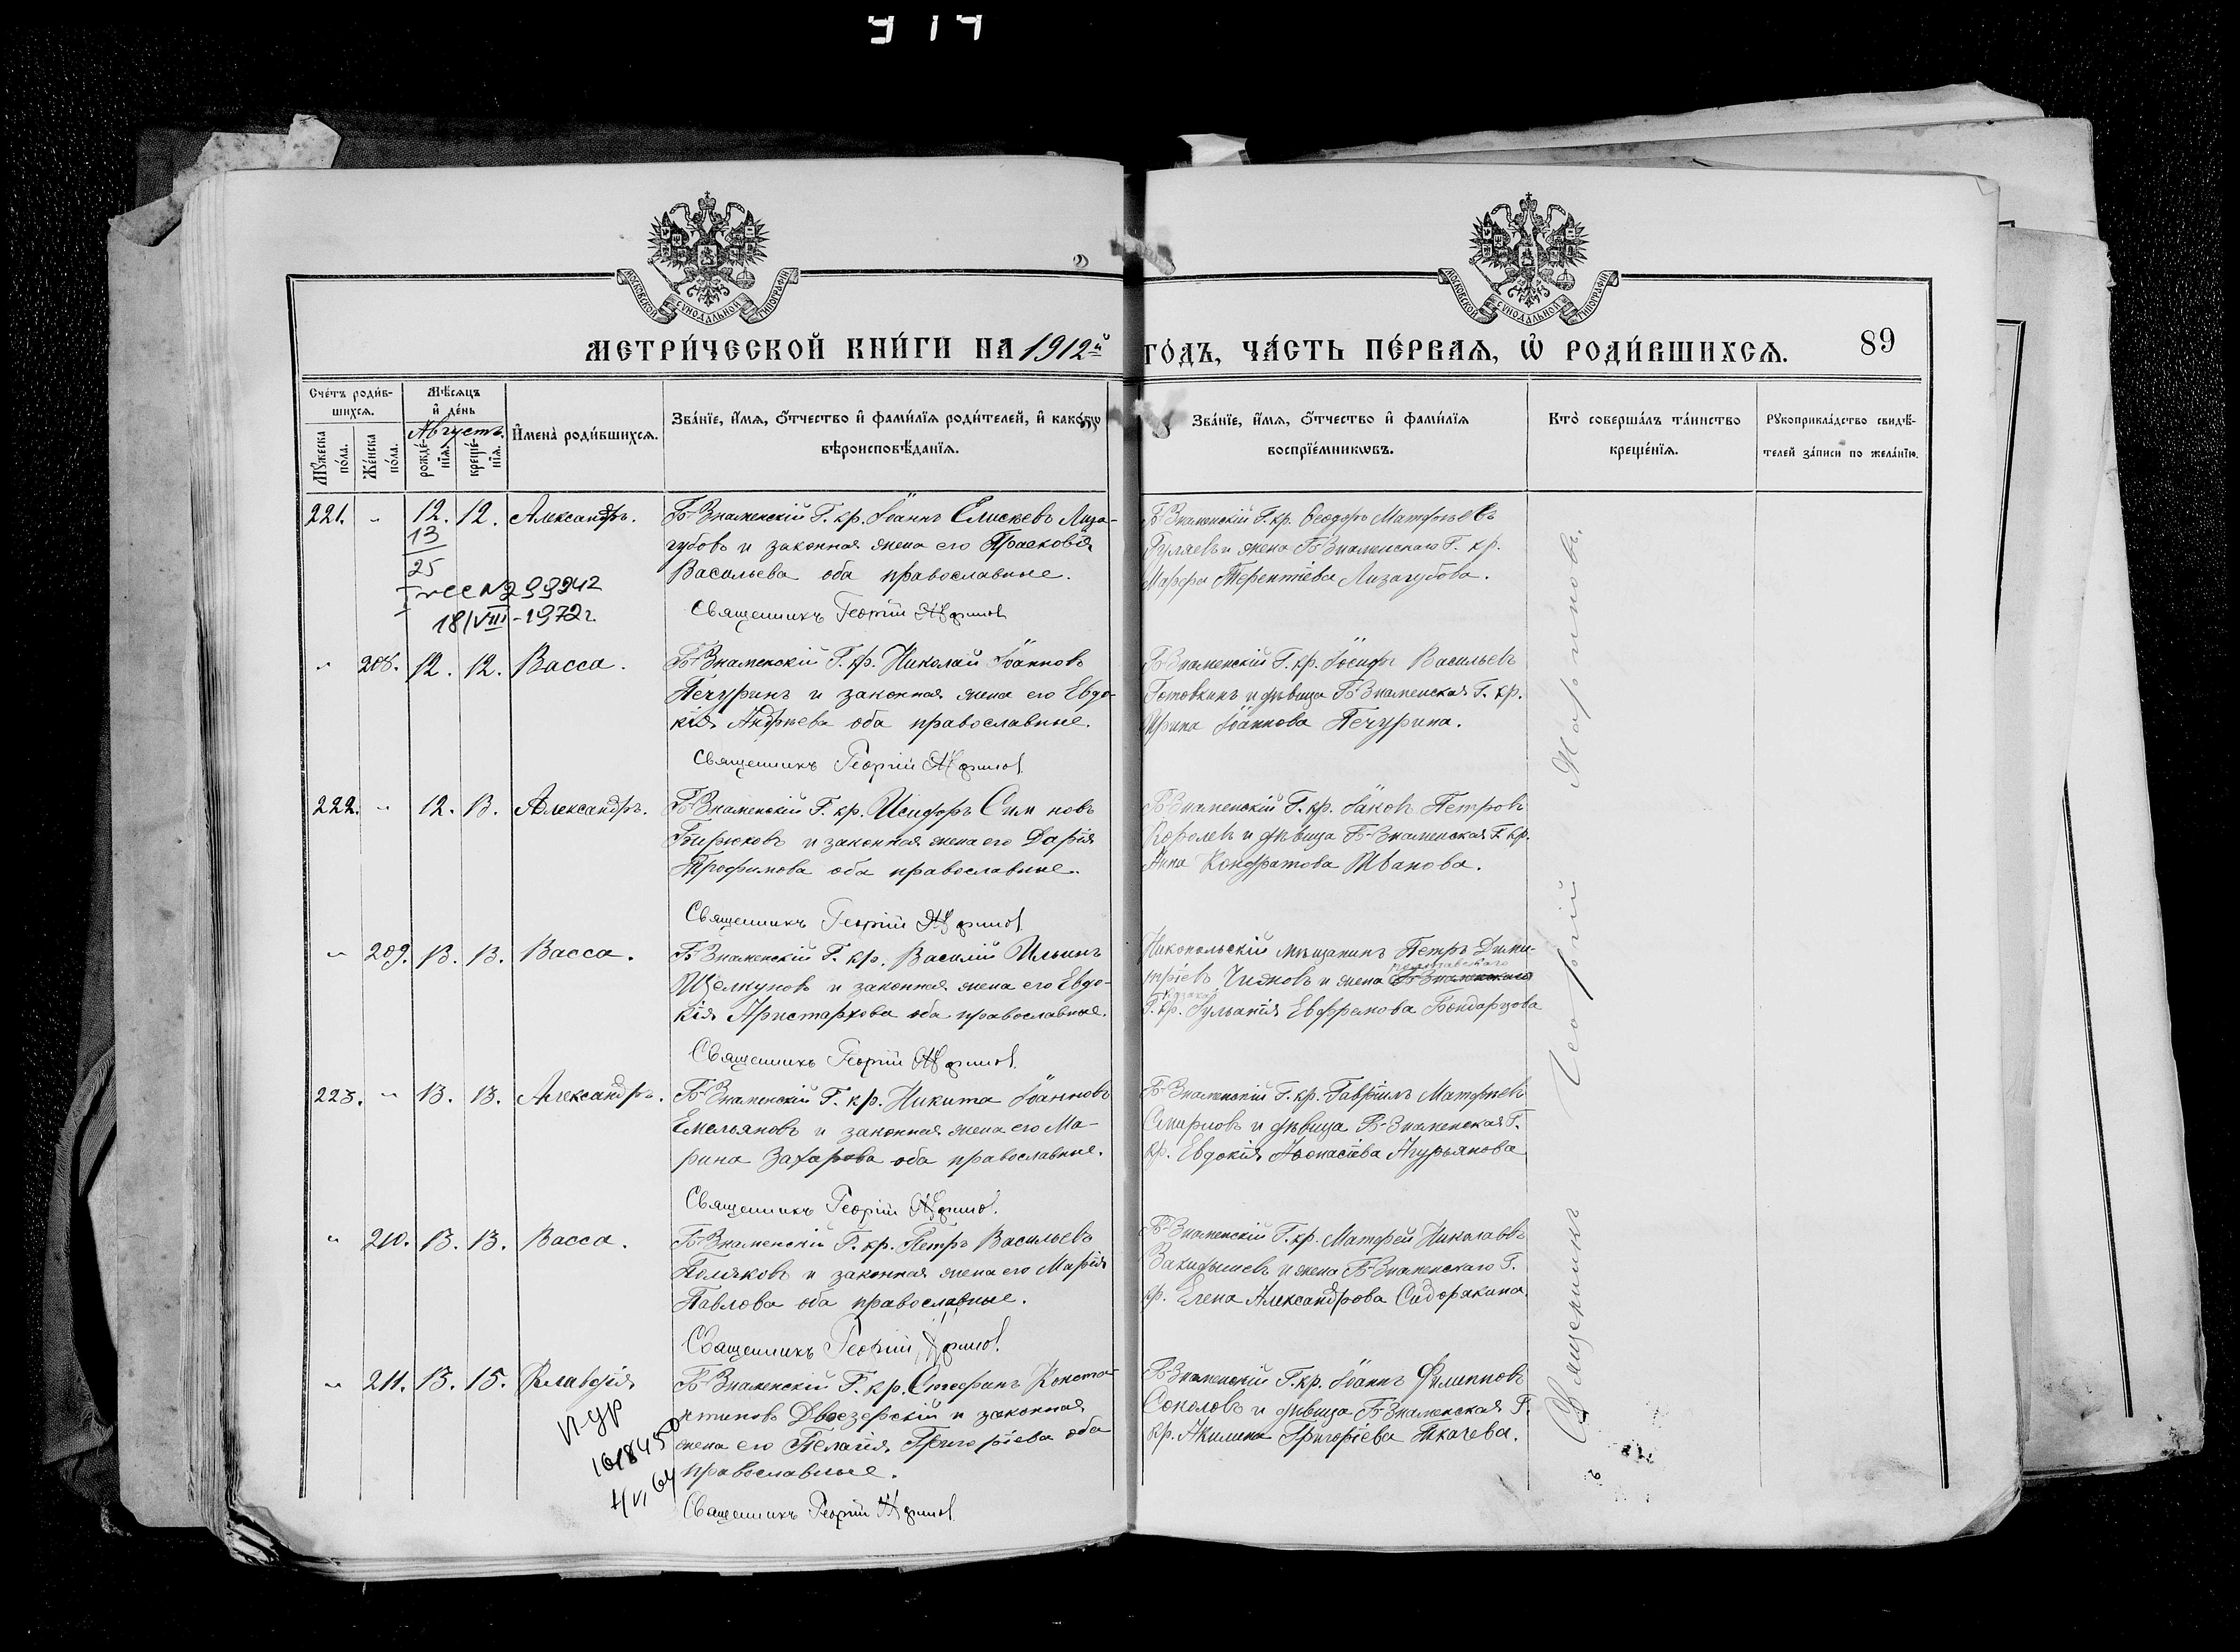 МЕТРИ́ЧЕСКОЙ КНИ́ГИ НА 1912й ГО́ДЪ, ЧА́СТЬ ПЕ́РВАѦ, Ѡ҆ РОДИ́ВШИХСѦ.
89
МОСКОВСКОЙ СѴНОДАЛЬНОЙ ТИПОГРАФІИ
МОСКОВСКОЙ СѴНОДАЛЬНОЙ ТИПОГРАФІИ
Сче́тъ роди́в-
шихсѧ.
Мꙋ́жеска по́ла.
Же́нска по́ла.
Мѣ́сѧцъ
и҆ де́нь
Августъ.
рожде́нїѧ.
креще́нїѧ.
И҆мена̀ роди́вшихсѧ.
Зва́нїе, и҆́мѧ, ѻ҆́тчество и҆ фами́лїѧ роди́телей, и҆ како́гѡ
вѣроисповѣ́данїѧ.
Зва́нїе, и҆́мѧ, ѻ҆́тчество и҆ фами́лїѧ
воспрїе́мникѡвъ.
Кто̀ соверша́лъ та́инство
креще́нїѧ.
Рꙋкоприкла́дство свидѣ́-
телей за́писи по жела́нїю.
221. " 12. 12. Александръ.
13
25
99242
18/VIII-1972г.
Б-Знаменскій Г. кр. Іоаннъ Елисѣевъ Лиза-
губовъ и законная жена его Прасковія
Васильева оба православные.
Священникъ Георгій
Б-Знаменскій Г. кр. Ѳеодоръ Матфѣевъ
Гуляевъ и жена Б-Знаменскаго Г. кр.
Марфа Терентіева Лизагубова.
" 208. 12. 12. Васса.
Б-Знаменскій Г. кр. Николай Іоанновъ
Печуринъ и законная жена его Евдо-
кія Андреева оба православные.
Священникъ Георгій
Б-Знаменскій Г. кр. Іосифъ Васильевъ
Готовкинъ и дѣвица Б-Знаменская Г. кр.
Ирина Іоаннова Печурина.
222. " 12. 13. Александръ.
Б-Знаменскій Г. кр. Исидоръ
Бирюковъ и законная жена его Дарія
Трофимова оба православные.
Священникъ Георгій
Б-Знаменскій Г. кр. Іаковъ Петровъ
Королевъ и дѣвица Б-Знаменская Г. кр.
Анна Кондратова Иванова.
" 209. 13. 13. Васса.
Б-Знаменскій Г. кр. Василій Ильинъ
Щелкуновъ и законная жена его Евдо-
кія Аристархова оба православные.
Священникъ Георгій
Никопольскій мѣщанинъ Петръ Дими-
тріевъ Чижовъ и жена Б-Знаменскаго
Г. кр. Іуліанія Бондарцова
223. " 13. 13. Александръ.
Б-Знаменскій Г. кр. Никита Іоанновъ
Емельяновъ и законная жена его Ма-
рина Захарова оба православные.
Священникъ Георгій
Б-Знаменскій Г. кр. Гавріилъ Матфѣевъ
Смирновъ и дѣвица Б-Знаменская Г.
кр. Евдокія Аѳонасіева Агурьянова
" 210. 13. 13. Васса.
Б-Знаменскій Г. кр. Петръ Васильевъ
Поляковъ и законная жена его Марія
Павлова оба православные.
Священникъ Георгій
Б-Знаменскій Г. кр. Матфей Николаевъ
и жена Б-Знаменскаго Г.
кр. Елена Александрова Сидоракина.
" 211. 13. 15. Клавдія
101845
4/VI 64
Б-Знаменскій Г. кр. Стефанъ Конста-
нтиновъ Двоезерскій и законная
жена его Пелагія Григоріева оба
православные.
Священникъ Георгій
Б-Знаменскій Г. кр. Іоаннъ Филипповъ
Соколовъ и дѣвица Б-Знаменская Г.
кр. Акилина Григоріева Ткачева.
Священникъ Георгій